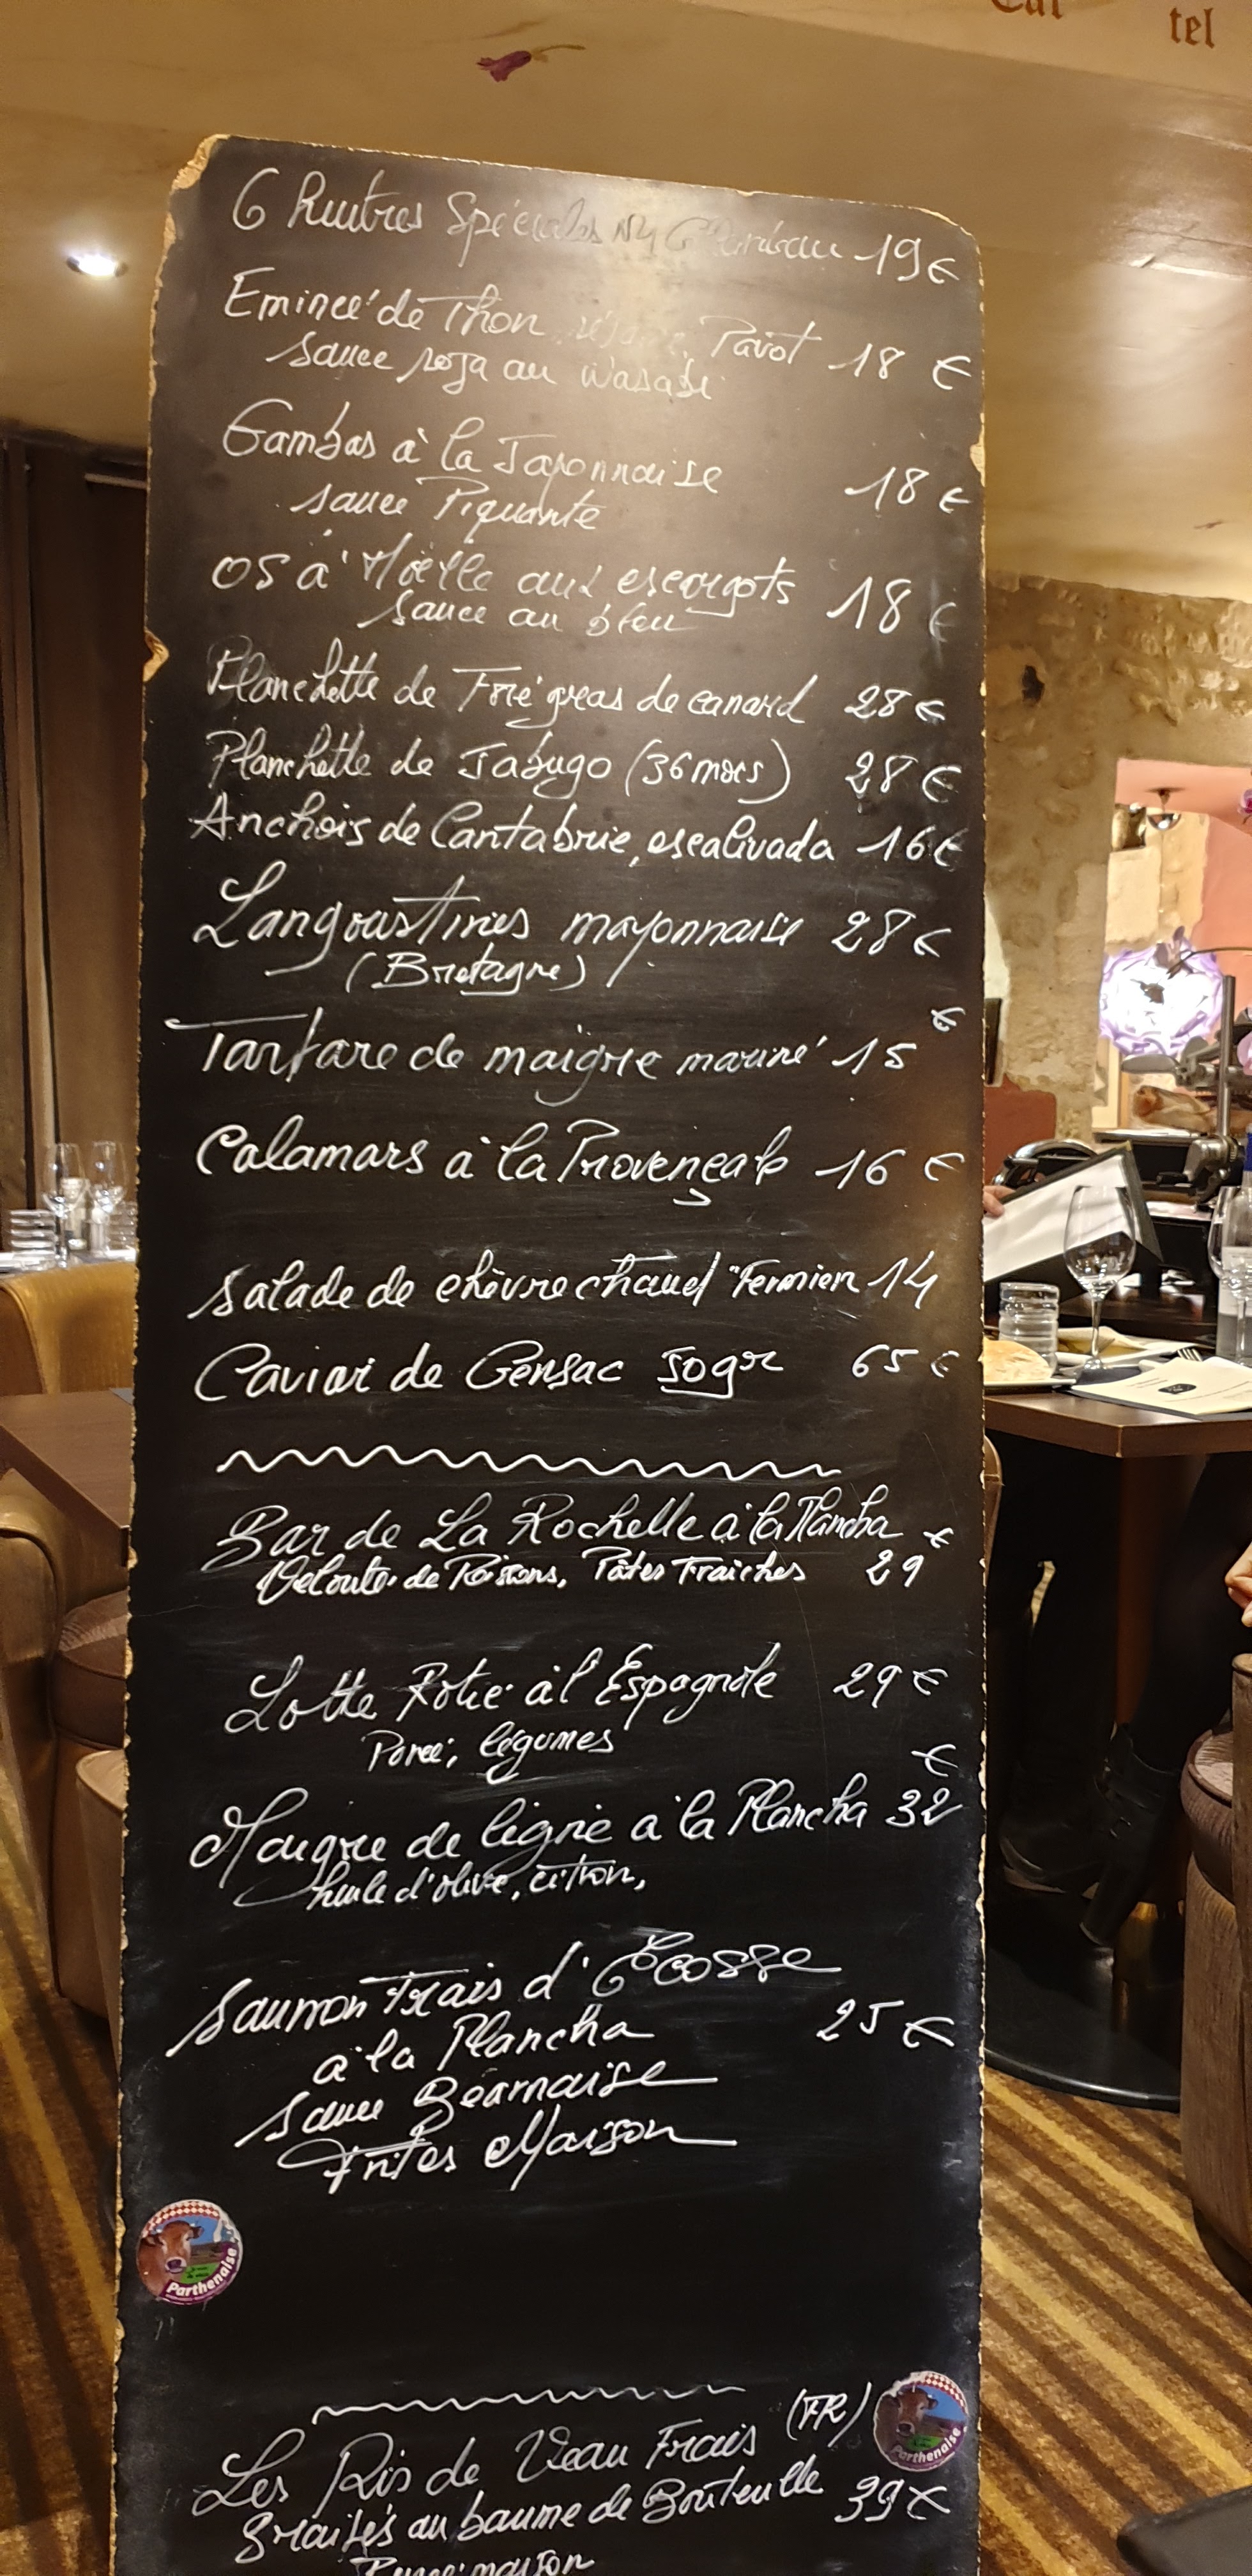 Cat
tel
6 Huitres Spéciales N°4 Gillardeau 19€
Emincé de Thon Pavot 18 €
sauce soja au wasabi
Gambas à la Japonnaise 18 €
sauce Piquante
OS à Moëlle aux escargots 18 €
sauce au bleu
Planchette de Foie gras de canard 28 €
Planchette de Jabugo (36 mois) 28 €
Anchois de Cantabrie, escalivada 16€
Langoustines mayonnaise 28 €
(Bretagne)
Tartare de maigre mariné 15 €
Calamars à la Provençale 16 €
Salade de chèvre chaud "Fermier 14
Caviar de Gensac 30gr 65 €
Bar de La Rochelle à la Plancha €
Velouté de Poissons, Pâtes Fraiches 29
Lotte Rotie à l'Espagnole 29 €
Purée, légumes
Maigre de ligne à la Plancha 32 €
huile d'olive, citron,
Saumon Frais d'Ecosse
à la Plancha 25 €
Sauce Béarnaise
Frites Maison
Parthenaise
Les Ris de Veau Frais (FR)
Parthenaise
braisés au baume de Bouteville 39 €
Purée maison